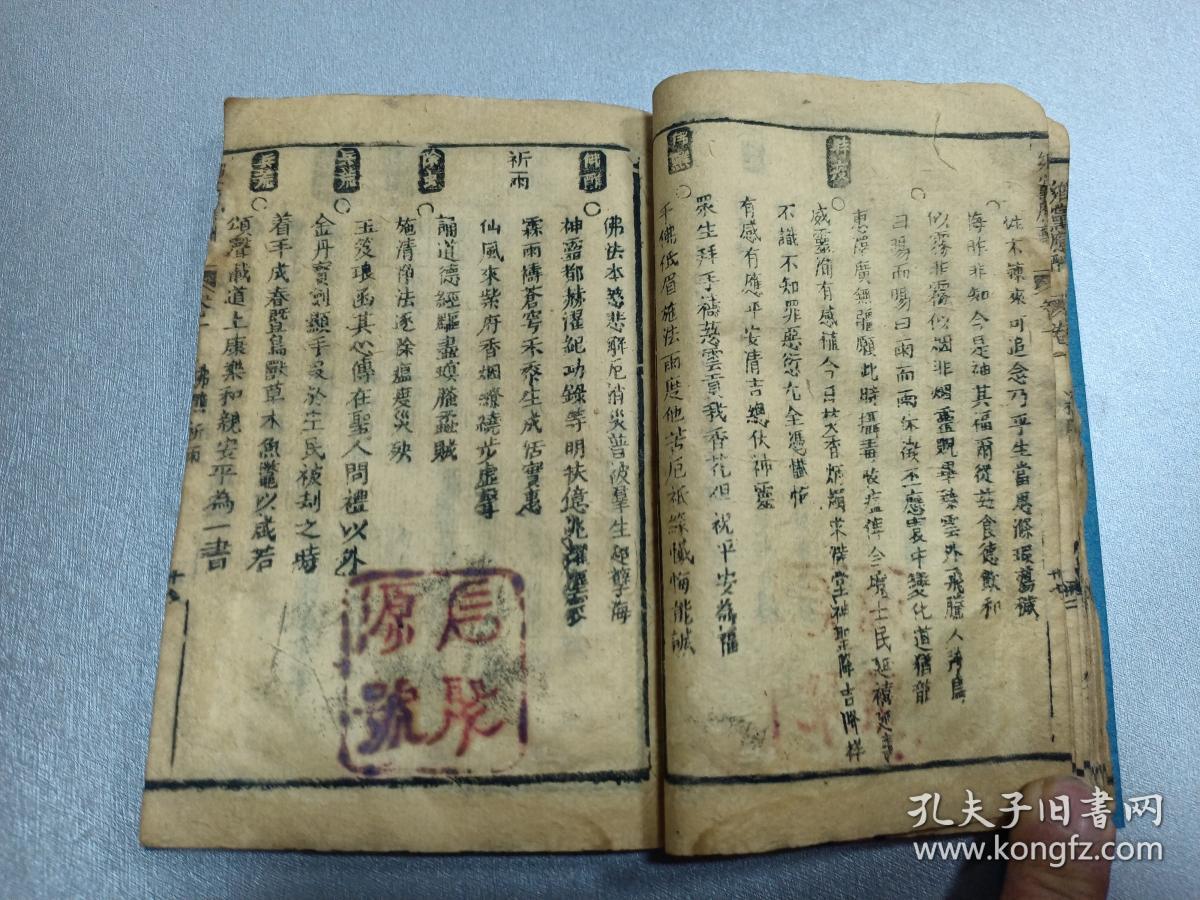 往不諫來可追念乃平生當思滌瑕蕩穢
悔昨非知今是神其福爾從茲食德飲和
似霧非霧似烟非烟靈觀畢臻雲外飛騰人
曰暘而暘曰雨而雨休徵丕應袁中變化道猶龍
惠澤廣無疆願此時攝毒收瘟俾今境士民延禧迎
威靈有感禱今日焚香炳燭求僕堂神聖降吉降祥
不識不知罪惡愆尤全憑懺悔
有感有應平安清吉總伏神靈
眾生拜手禱慈雲貢我香花但祝平安為福
千佛低眉施法雨度他苦厄祗緣懺悔能誠
佛醮
佛法本慈悲解厄消災普彼羣生超孽海
神靈都赫濯紀功錄等明扶億兆
祈雨
霖雨禱蒼穹禾黍生成恬實惠
仙風來紫府香烟繚繞步虛聲
除蟲
誦道德經驅盡螟螣蟊賊
施清淨法逐除瘟疫災殃
兵荒
玉笈琅函其心傳在聖人問禮以外
金丹寶劍顯手段於士民被刦之時
兵荒
着手成春暨鳥獸草木魚鼈以咸若
頌聲載道上康樂和親安平為一書
佛醮 祈雨
源號
孔夫子旧書网
www.kongfz.com